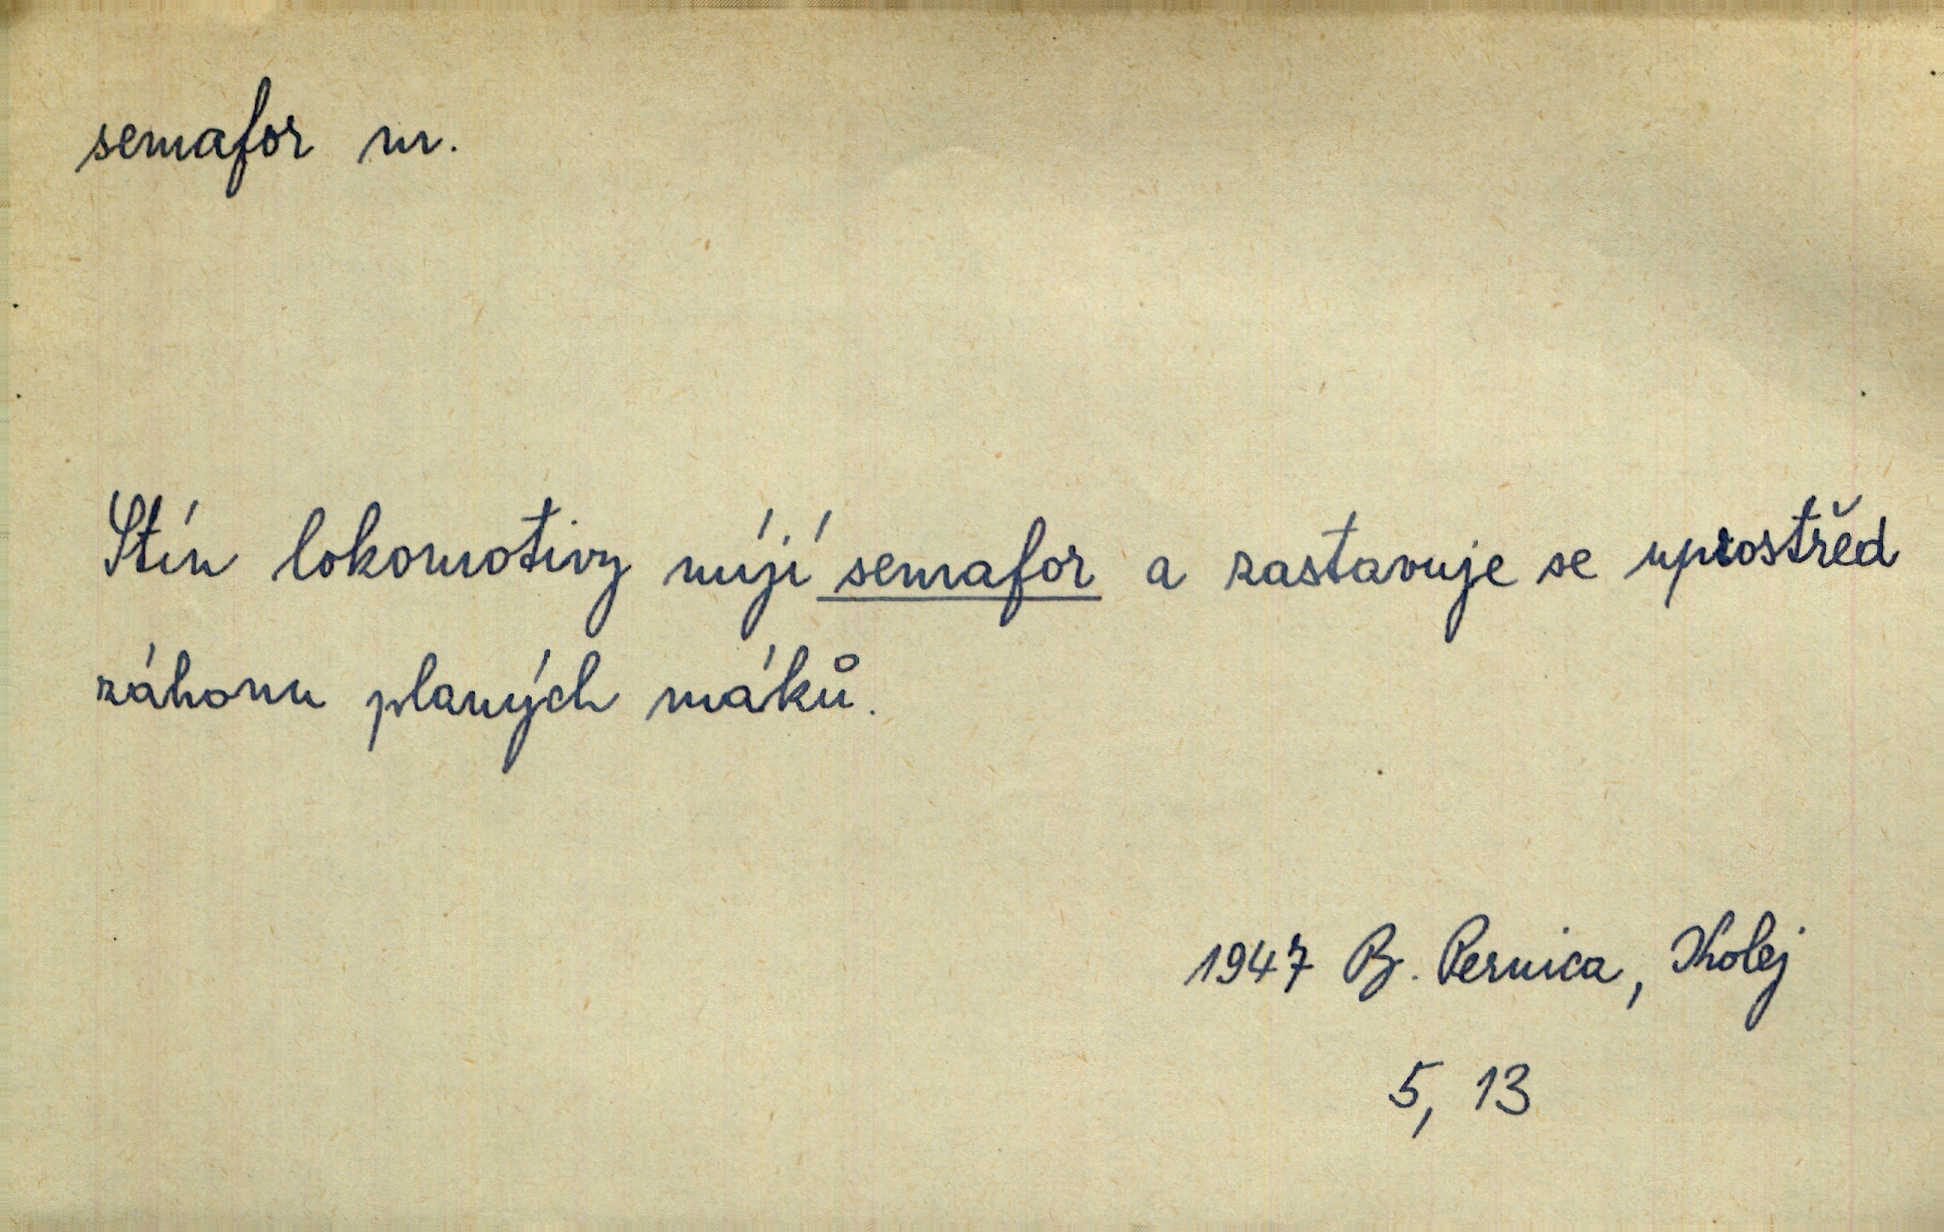 semafor m.
Stín lokomotivy míjí semafor a zastavuje se uprostřed
záhonu planých máků.
1947 B. Pernica, Kolej
5, 13